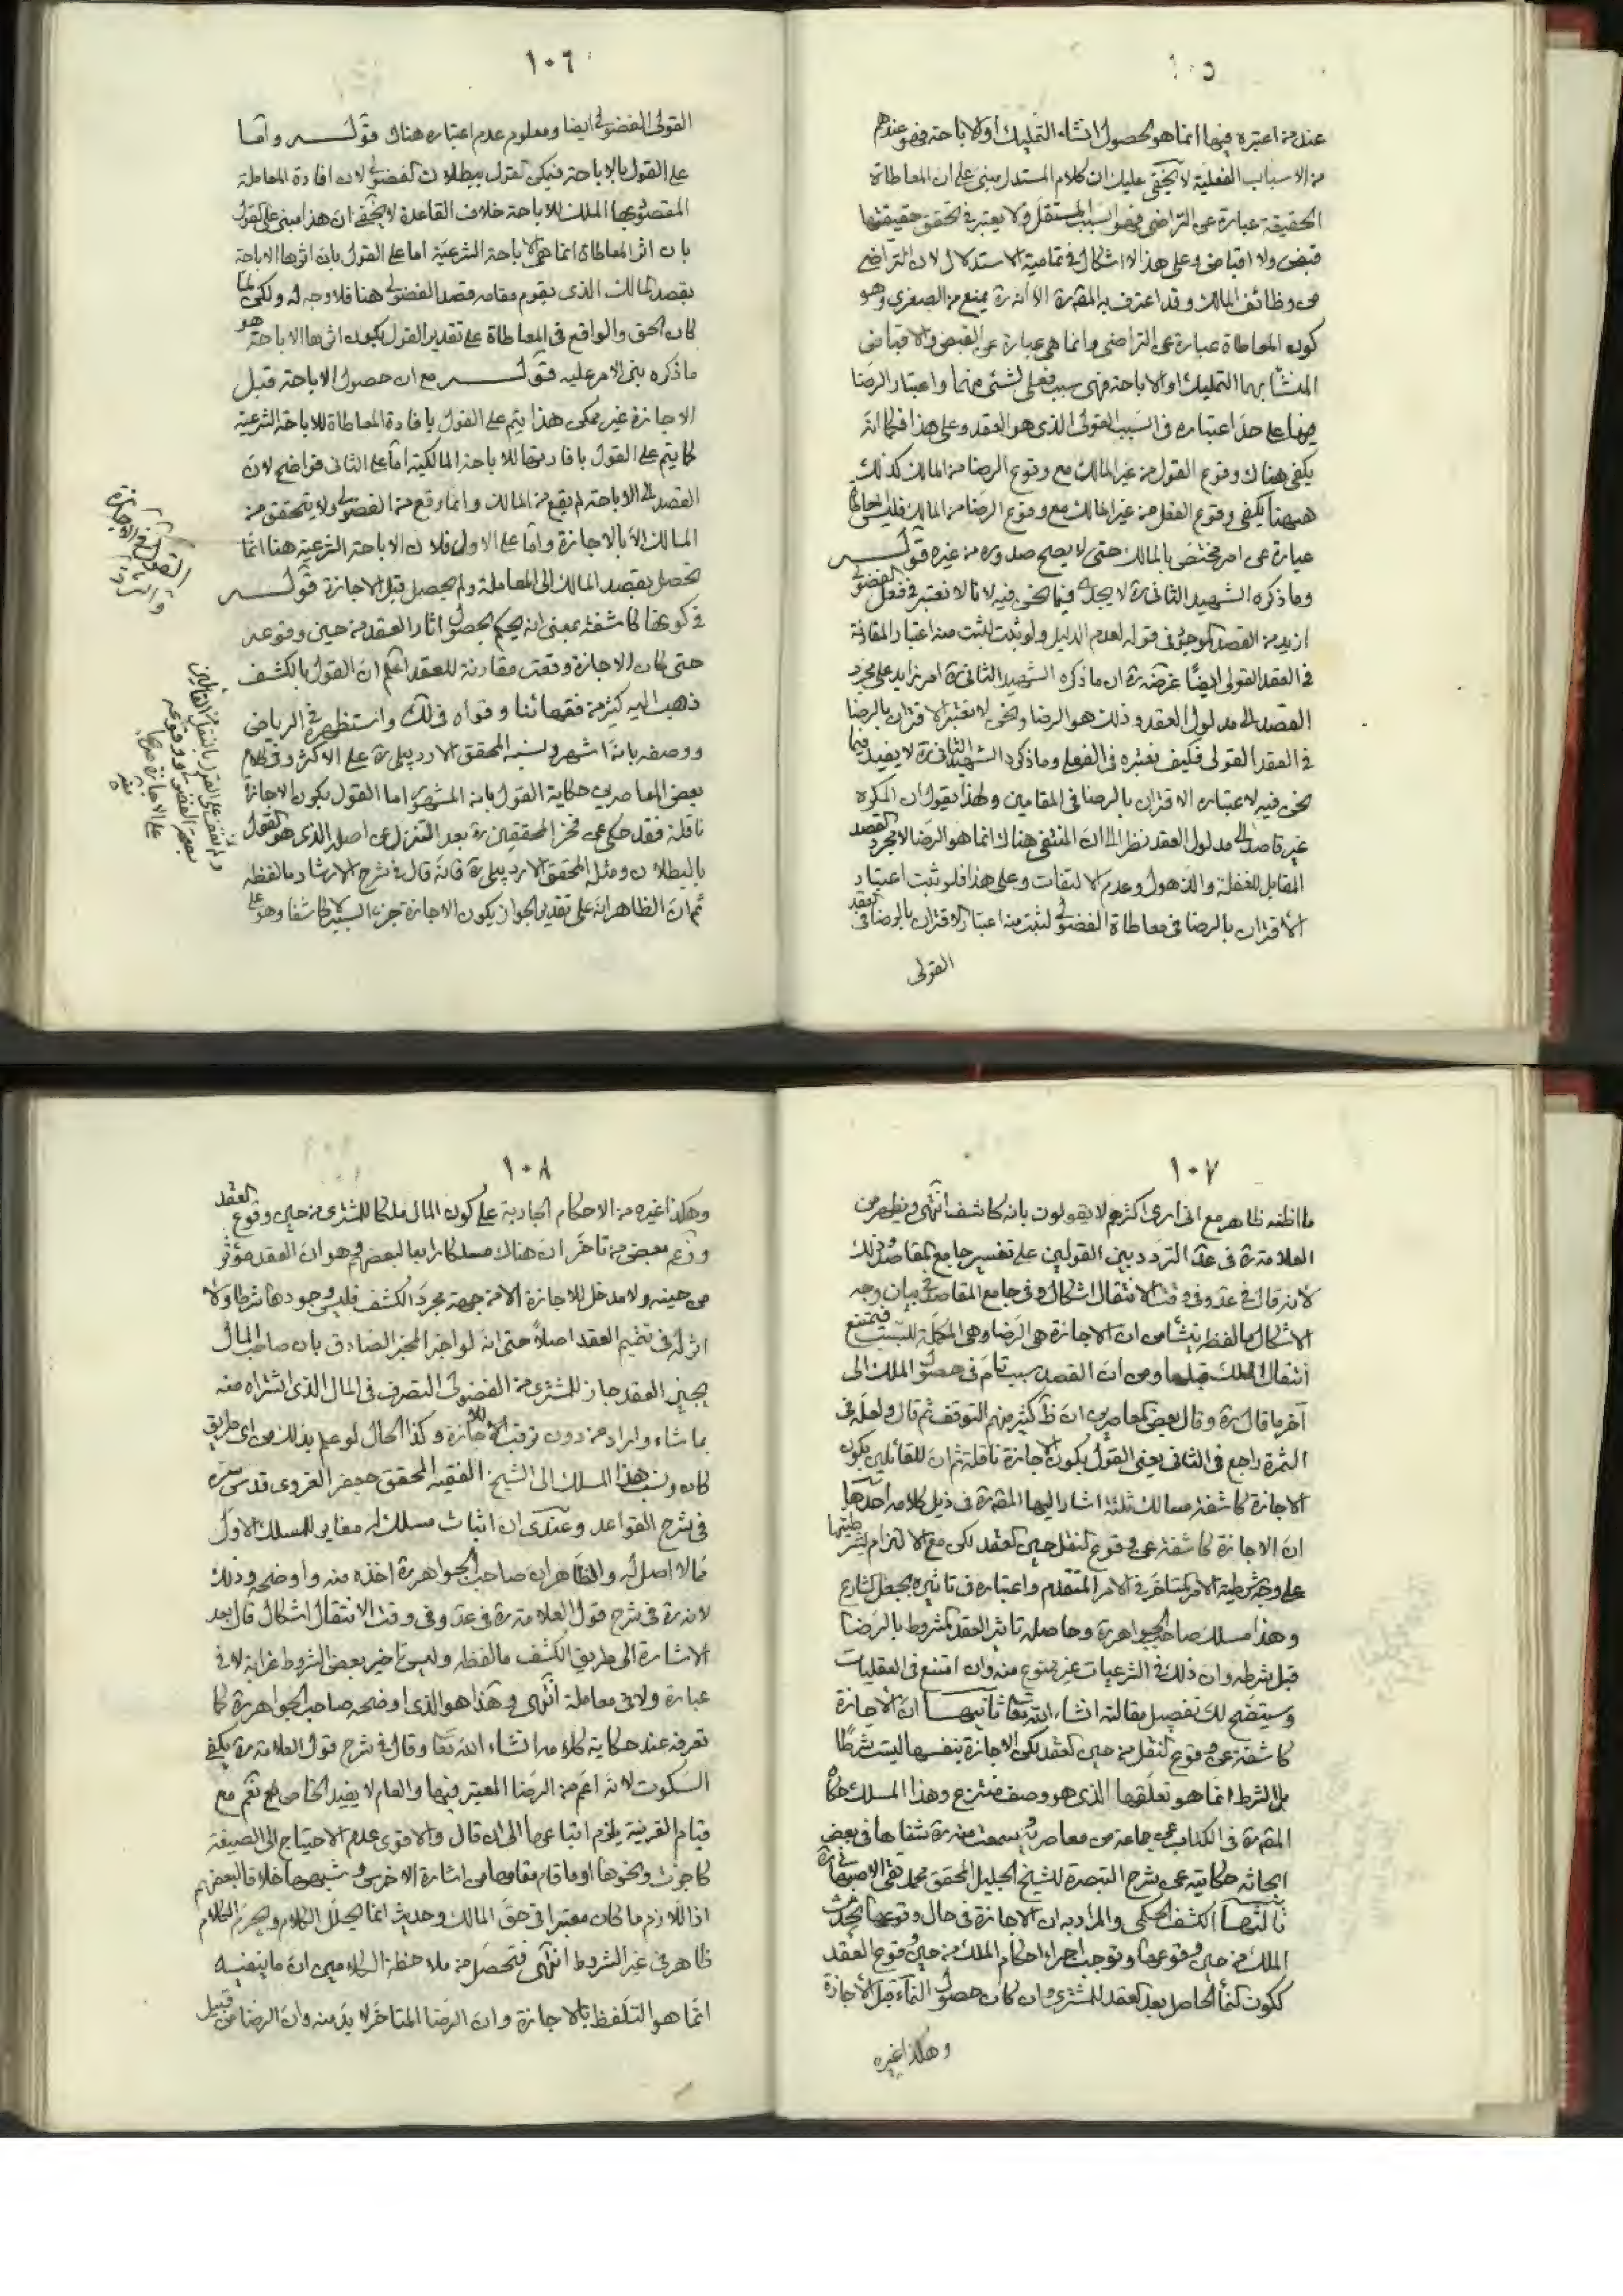 ١٠٥
عند من اعتبره فيها انما هو لحصول انشاء التمليك او الاباحة فهو عندهم
من الاسباب الفعلية لا يخفى عليك ان كلام المستدل مبنى على ان المعاطاة
الحقيقة عبارة عن التراضى فهو السبب المستقل ولا يعتبر فى تحقق حقيقتها
قبض ولا اقباض وعلى هذا لا اشكال فى تمامية الاستدلال لان التراضى
من وظائف المالك وقد اعترف به المقرة الا انه ره يمنع من الصغرى وهو
كون المعاطاة عبارة عن التراضى وانما هى عبارة عن القبض والاقباض
المنشأ بهما التمليك او الاباحة فهى سبب فعلى لشئ منهما واعتبار الرضا
فيها على حد اعتباره فى السبب القولى الذى هو العقد وعلى هذا فكما انه
يكفى هناك وقوع القول من غير المالك مع وقوع الرضا من المالك كذلك
هيهنا يكفى وقوع الفعل من غير المالك مع وقوع الرضا من المالك فليس
عبارة عن امر مختص بالمالك حتى لا يصح صدوره من غيره قوله
وما ذكره الشهيد الثانى ره لا يجدى فيما نحن فيه لانا لا نعتبر فى فعل الفضولى
ازيد من القصد الموجود فى قوله لعدم الدليل ولو ثبت لثبت منه اعتبار المقارنة
فى العقد القولى ايضًا غرضه ره ان ما ذكره الشهيد الثانى ره امر زايد على مجرد
القصد الى مدلول العقد وذلك هو الرضا ونحن لا نعتبر الاقتران بالرضا
فى العقد القولى فكيف نعتبره فى الفعلى وما ذكره الشهيد الثانى ره لا يفيد فيما
نحن فيه لاعتباره الاقتران بالرضا فى المقامين ولهذا نقول ان المكره
غير قاصد الى مدلول العقد نظرا الى ان المنتفى هناك انما هو الرضا لا مجرد القصد
المقابل للغفلة والذهول وعدم الالتفات وعلى هذا فلو ثبت اعتبار
الاقتران بالرضا فى معاطاة الفضولى لثبت منه اعتبار الاقتران بالرضا فى العقد
القولى
١٠٦
القولى الفضولى ايضا ومعلوم عدم اعتباره هناك قوله واما
على القول بالاباحة فيمكن القول ببطلان الفضولى لان افادة المعاملة
المقصود بها الملك للاباحة خلاف القاعدة لا يخفى ان هذا مبنى على القول
بان اثر المعاطاة انما هى الاباحة الشرعية اما على القول بان اثرها الاباحة
بقصد المالك الذى يقوم مقامه قصد الفضولى هنا فلا وجه له ولكن لما
كان الحق والواقع فى المعاطاة على تقدير القول بكون اثرها الاباحة هو
ما ذكره بنى الامر عليه قوله مع ان حصول الاباحة قبل
الاجازة غير ممكن هذا يتم على القول بافادة المعاطاة للاباحة الشرعية
كما يتم على القول بافادتها للاباحة المالكية اما على الثانى فواضح لان
القصد الى الاباحة لم يقع من المالك وانما وقع من الفضولى ولا يتحقق من
المالك الا بالاجازة واما على الاول فلان الاباحة الشرعية هنا انما
تحصل بقصد المالك الى المعاملة ولم يحصل قبل الاجازة قوله
فى كونها كاشفة بمعنى انه يحكم بحصول اثار العقد من حين وقوعه
حتى كان الاجازة وقعت مقارنة للعقد اعلم ان القول بالكشف
ذهب اليه كثير من فقهائنا وقواه فى لك واستظهره فى الرياض
ووصفه بانه اشهر ونسبه المحقق الاردبيلى ره على الاكثر وفى كلام
بعض المعاصرين حكاية القول بانه المشهور اما القول بكون الاجازة
ناقلة فقد حكى عن فخر المحققين ره بعد التنزل عن اصله الذى هو القول
بالبطلان ومثله المحقق الاردبيلى ره فانه قال فى شرح الارشاد ما لفظه
ثم ان الظاهر انه على تقدير الجواز يكون الاجازة جزء السبب لا كاشفا وهو على
القول فى الاجازة
والرد
١٠٧
ما اظنه ظاهر مع انى ارى اكثرهم لا يقولون بانه كاشف انتهى ويظهر من
العلامة ره فى عد التردد بين القولين على تفسير جامع المقاصد وذلك
لانه قال فى عد وفى وقت الانتقال اشكال وفى جامع المقاصد فى بيان وجه
الاشكال ما لفظه ينشأ من ان الاجازة هى الرضا وهى المكملة للسبب فيمتنع
انتقال الملك قبلها ومن ان القصد سبب تام فى حصول الملك الى
آخر ما قال ره وقال بعض المعاصرين ان ظ كثير منهم التوقف ثم قال ولعله فى
الثمرة راجع فى الثانى يعنى القول بكون الاجازة ناقلة ثم ان للقائلين بكون
الاجازة كاشفة مسالك ثلثة اشار اليها المقرة فى ذيل كلامه احدها
ان الاجازة كاشفة عن وقوع النقل حين العقد لكن مع الالتزام بشرطيتها
على وجه شرطية الامر المتاخر فى الامر المتقدم واعتباره فى تاثيره بجعل الشارع
وهذا مسلك صاحب الجواهر ره وحاصله تاثير العقد المشروط بالرضا
قبل شرطه وان ذلك فى الشرعيات غير ممنوع منه وان امتنع فى العقليات
وسيتضح لك تفصيل مقالته انشاء الله تعا ثانيها ان الاجازة
كاشفة عن وقوع النقل من حين العقد لكن الاجازة بنفسها ليست شرطًا
بل الشرط انما هو تعلقها الذى هو وصف منتزع وهذا المسلك حكاه
المقرة فى الكتاب عن جماعة من معاصريه وسمعت منه ره شفاها فى بعض
ابحاثه حكايته عن شرح التبصرة للشيخ الجليل المحقق محمد تقى الاصبهانى ره
ثالثها الكشف الحكمى والمراد به ان الاجازة فى حال وقوعها تحدث
الملك من حين وقوعها وتوجب اجراء احكام الملك من حين وقوع العقد
ككون النماء الحاصل بعد العقد للمشترى وان كان حصول النماء قبل الاجازة
وهكذا غيره
١٠٨
وهكذا غيره من الاحكام الجارية على كون المال ملكا للمشترى من حين وقوع العقد
وزعم بعض من تاخر ان هناك مسلكا رابعا لبعضهم وهو ان العقد مؤثر
من حينه ولا مدخل للاجازة الا من جهة مجرد الكشف فليس وجودها شرطا ولا
اثر له فى تتميم العقد اصلًا حتى انه لو اخبر المخبر الصادق بان صاحب المال
يجيز العقد جاز للمشترى من الفضولى التصرف فى المال الذى اشتراه منه
بما شاء واراد من دون ترقب للاجازة وكذا الحال لو علم بذلك من اى طريق
كان ونسب هذا المسلك الى الشيخ الفقيه المحقق جعفر الغروى قدس سره
فى شرح القواعد وعندى ان اثبات مسلك له مغاير للمسلك الاول
مما لا اصل له والظاهر ان صاحب الجواهر ره اخذه منه واوضحه وذلك
لانه ره فى شرح قول العلامة ره فى عد وفى وقت الانتقال اشكال قال بعد
الاشارة الى طريق الكشف ما لفظه وليس تاخير بعض الشروط غرابة لا فى
عبارة ولا فى معاملة انتهى وهذا هو الذى اوضحه صاحب الجواهر ره كما
تعرفه عند حكاية كلامه انشاء الله تعا وقال فى شرح قول العلامة ره يكفى
السكوت لانه اعم من الرضا المعتبر فيها والعام لا يفيد الخاص نعم مع
قيام القرينة يلزم اتباعها الى ان قال والاقوى عدم الاحتياج الى الصيغة
كاجزت ونحوها او ما قام مقامها من اشارة الاخرس وشبهها خلافا لبعضهم
اذ اللازم ما كان معتبرا فى حق المالك وحديث انما يحلل الكلام ويحرم الكلام
ظاهر فى غير الشروط انتهى فتحصل من ملاحظة الكلامين ان ما ينفيه
انما هو التلفظ بالاجازة وان الرضا المتاخر لا بد منه وان الرضا من قبيل